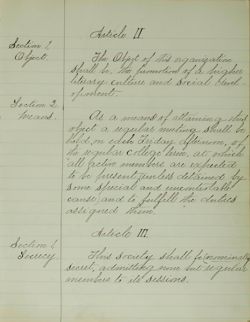 Article II.
Section 1.
Object.
The Object of this organization
shall be the promotion of a higher
literary culture and social devel-
opment.
Section 2.
Means.
As a means of attaining this
object a regular meeting shall be
held, on each Friday afternoon, of
the regular college term, at which
all active members are expected
to be present, unless detained by
some special and uncontrolable
cause; and to fulfill the duties
assigned them.
Article III.
Section 1.
Secrecy.
This society shall be nominally
secret, admitting none but regular
members to its sessions.